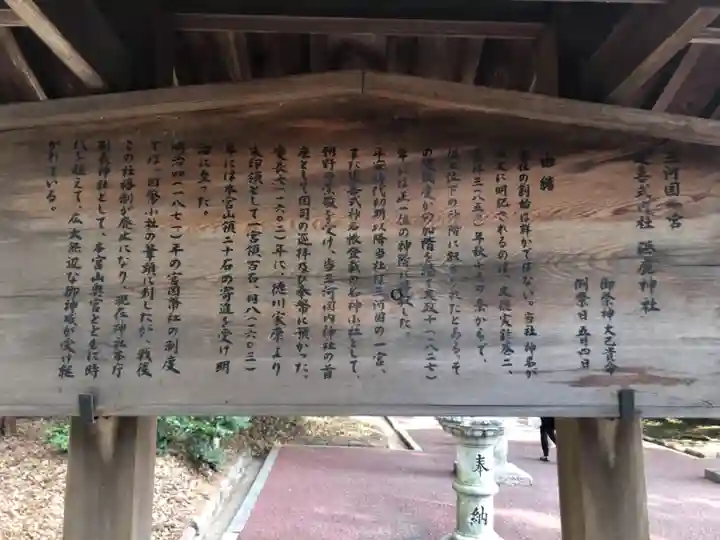 三河国一宮
延喜式内社 砥鹿神社
御祭神 大己貴命
例祭日 五月四日
由緒
当社の創始は詳かではない。当社神名が
史上に明記されるのは、文徳実録巻二、
年秋十月の条からで、
従五位下の神階に叙せられたとある。そ
の後数度かの昇階を経て
年には正一位の神階に
平安時代初期以降当社は三河国の一宮、
また延喜式神名帳登載の式内小社として、
朝野の崇敬を受け、当三河国内神社の首
座として国司の巡拝及び奉幣に預かった。
慶長七(一六〇二)年に、徳川家康より
朱印領として一宮領百石、
年には本宮山領二十石の寄進を受け明
治に至った。
明治四(一八七一)年の官国幣社の制度
では、国幣小社の筆頭に列したが、戦後
この社格制が廃止になり、現在神社本庁
別表神社として、本宮山奥宮と共に時
代を超えて、広大無辺な御神徳が受け継
がれている。
奉納